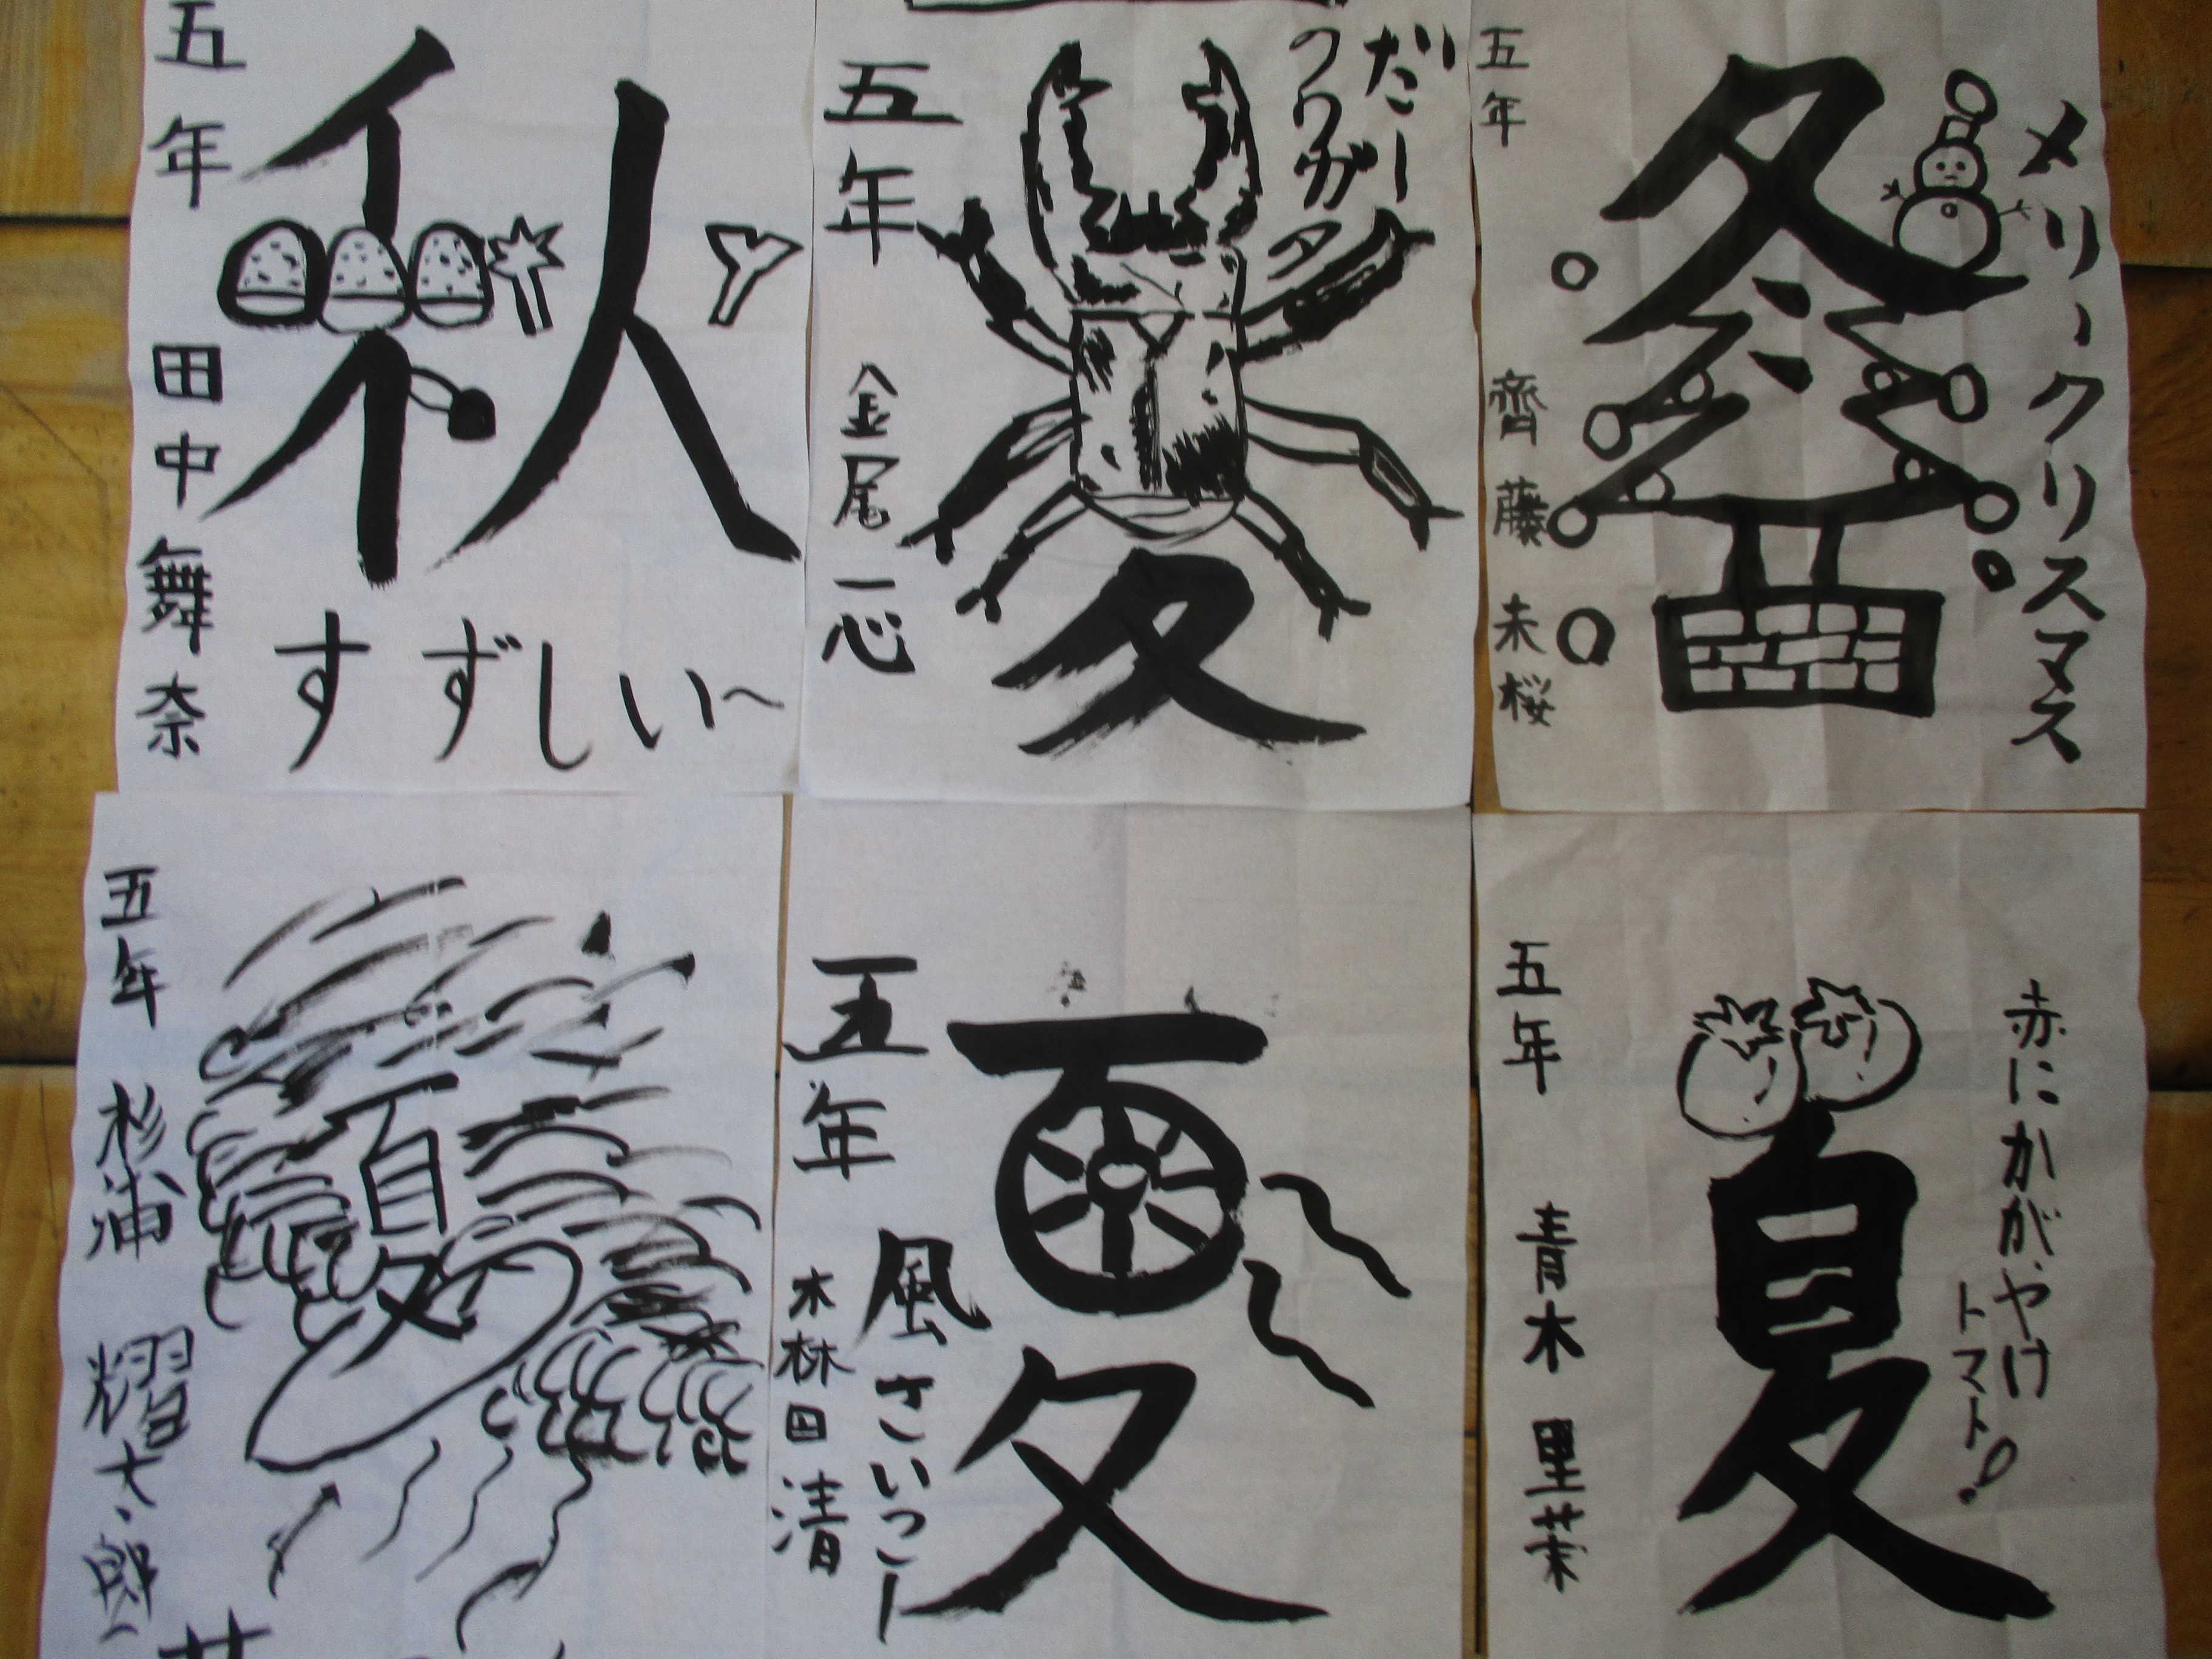 メリークリスマス
冬
五年 齊藤未桜
だー
クワガタ
夏
五年 金尾一心
秋
すずしい～
五年 田中舞奈
赤にかがやけ
トマト!
夏
五年 青木里茉
夏
風さいこー
五年
林田清
夏
五年 杉浦 耀太郎